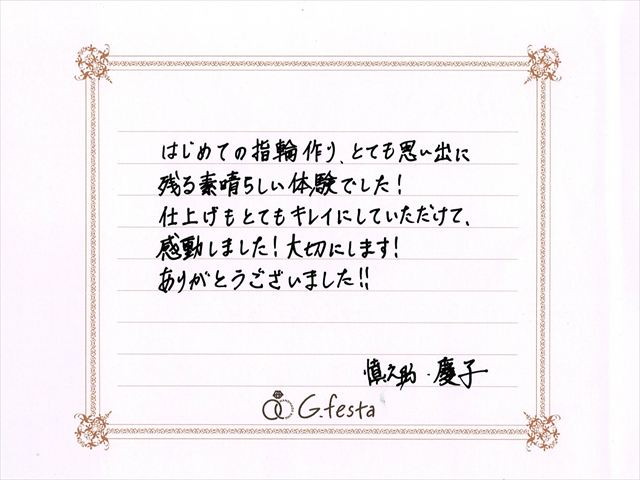 はじめての指輪作り、とても思い出に
残る素晴らしい体験でした！
仕上げもとてもキレイにしていただけて、
感動しました！大切にします！
ありがとうございました!!
慎之助・慶子
G.festa